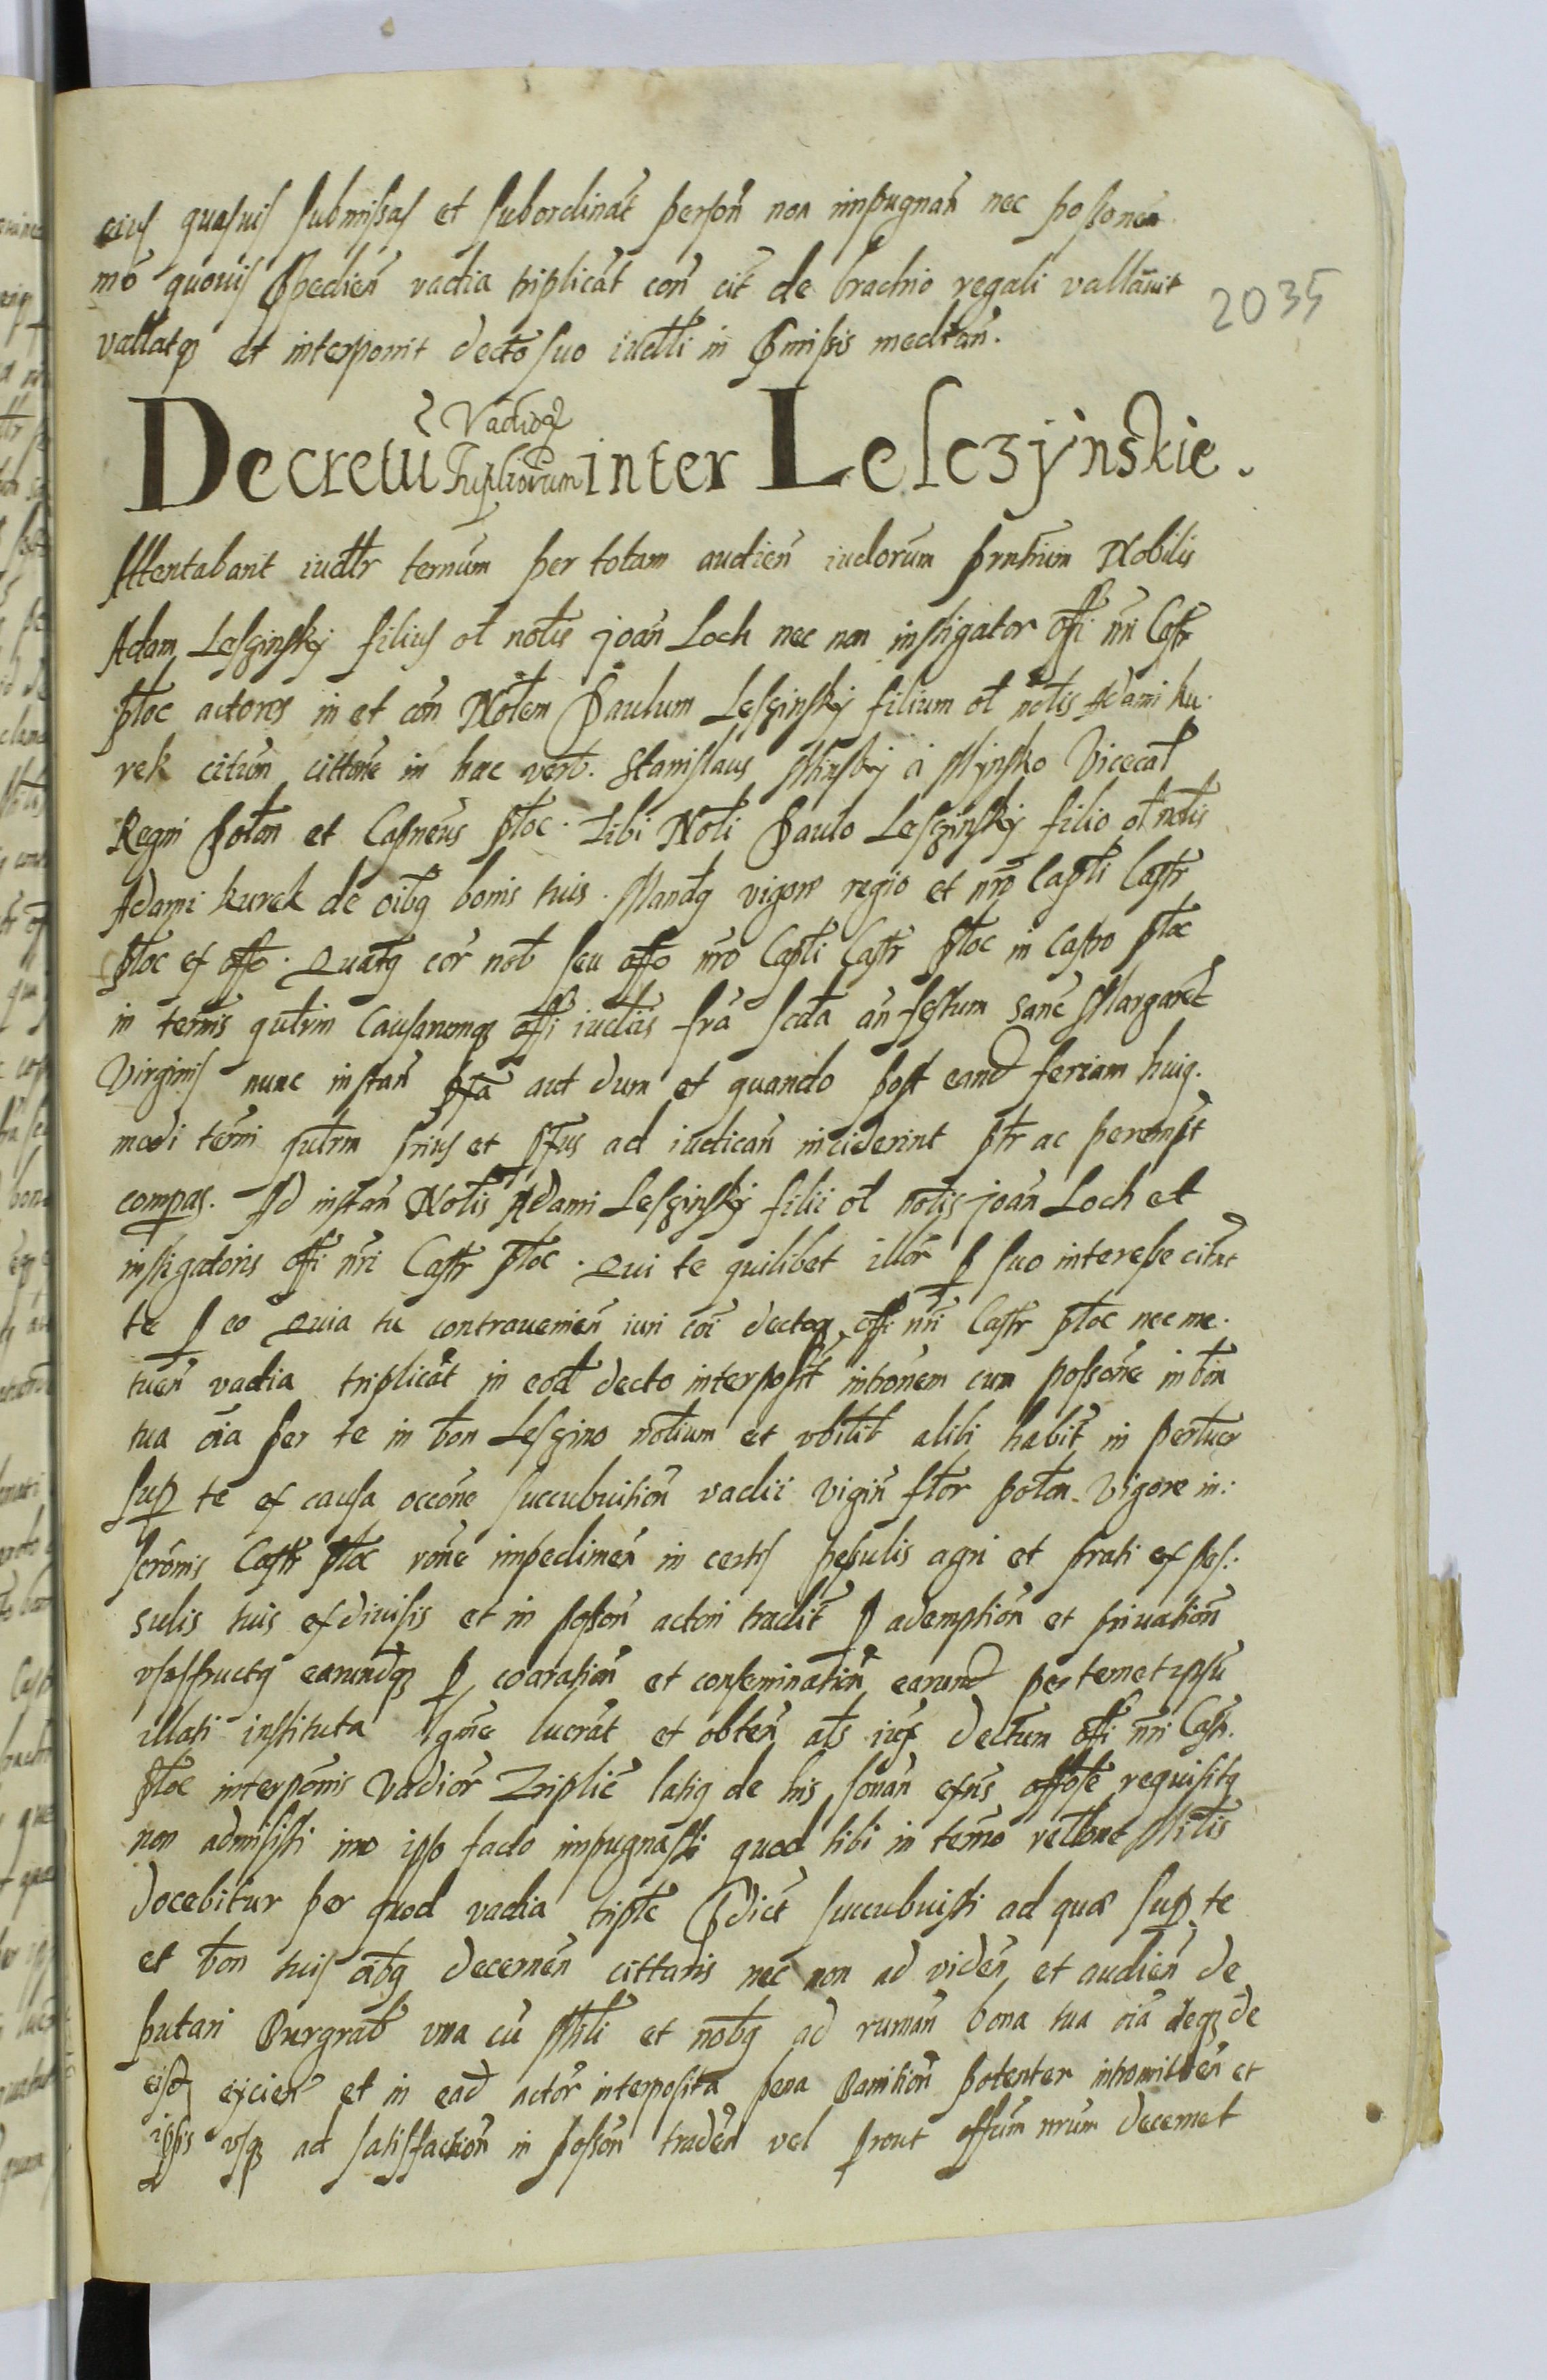 eius quasuis submissas et subordinat̃ person̄ non impugnan̄ nec possonem
mō quouis p̄pedien̄ vadia triplicat̃ con̄ cit̃ de brachio regali vallauit
vallatq3 et interponit decto suo iudli in p̄missis mediañ.
Decretū Vadior Tripliorum inter Lesczÿnskie.
Attentabant iudlr ternum per totam audien̄ iudiorum prntium Nobilis
Adam Lesczinskÿ filius ol notis Joan̄ Loch nec non instigator offi nr̄i Castr
ploc actores in et con̄ Noblem Paulum Lesczinskÿ filium ol notis Adami ku
rek citum cittōne in hac verb. Stanislaus Minskÿ a Mÿnsko Vicecal
Regni Polon et Capneus ploc. Tibi Nobli Paulo Lesczinskÿ filio ol notis
Adami kurek de oibq bonis tuis. Mandq vigore regio et nr̄o Capli Castr
ploc ex offo. Quatq cor nob seu offo nr̄o Capli Castr ploc in Castro ploc
in termis qutrm Causarumq3 offi iudiciis fr̄a scda an̄ festum Sanc̄ Margaret
Virginis nunc instan̄ pta aut dum et quando post eand feriam huiq
modi termi qutrm prius et ptus ad iudican̄ inciderint ptr ac perempt
compas. Ad instan̄ Noblis Adami Lesczinskÿ filii ol notis Joan̄ Loch et
instigatoris offi nr̄i Castr ploc. Qui te quilibet illor p suo interesse citat
te p eo Quia tu contrauenien̄ iuri coī dectoq offi nr̄i Castr ploc nec me
tuen̄ vadia triplicat̃ in eod decto interposit̃ intronem cum possone in bon
tua oīa per te in bon Lesczino notium et vbilit alibi habit̃ in pertuer
sup te ex causa occōne succubuition̄ vadii vigin̄ flor polon. Vigore in
scrōnis Castr ploc rōne impedimen̄ in certis pessulis agri et prati ex pes
sulis tuis exdiuisis et in posson̄ actori tradit̃ p ademption̄ et priuation̄
vsusfructq earundq3 p coaration̄ et conseminatiōn earund per temetipsū
illati instituta lgme lucrat̃ et obten̄ als ius dectum offi nr̄i Castr.
ploc interpōnis Vadior Triplic̄ latiq de his sonan̄ exns offose requisitq
non admisisti imo ipso facto impugnasti quod tibi in termo rellone Mitlis
docebitur per quod vadia triple p̄dict succubuisti ad quæ sup te
et bon tuis oībq decernen̄ cittaris nec non ad viden̄ et audien̄ de
putari Burgrab vna cū Mili et nobq ad ruman̄ bona tua oīa deq3 de
eisd eÿcien̄ et in ead actor interposita pena Banition̄ potenter intromitten̄ et
ipsis vsq3 ad satisfaction̄ in posson̄ traden̄ vel prout offum nrum decernet
2035